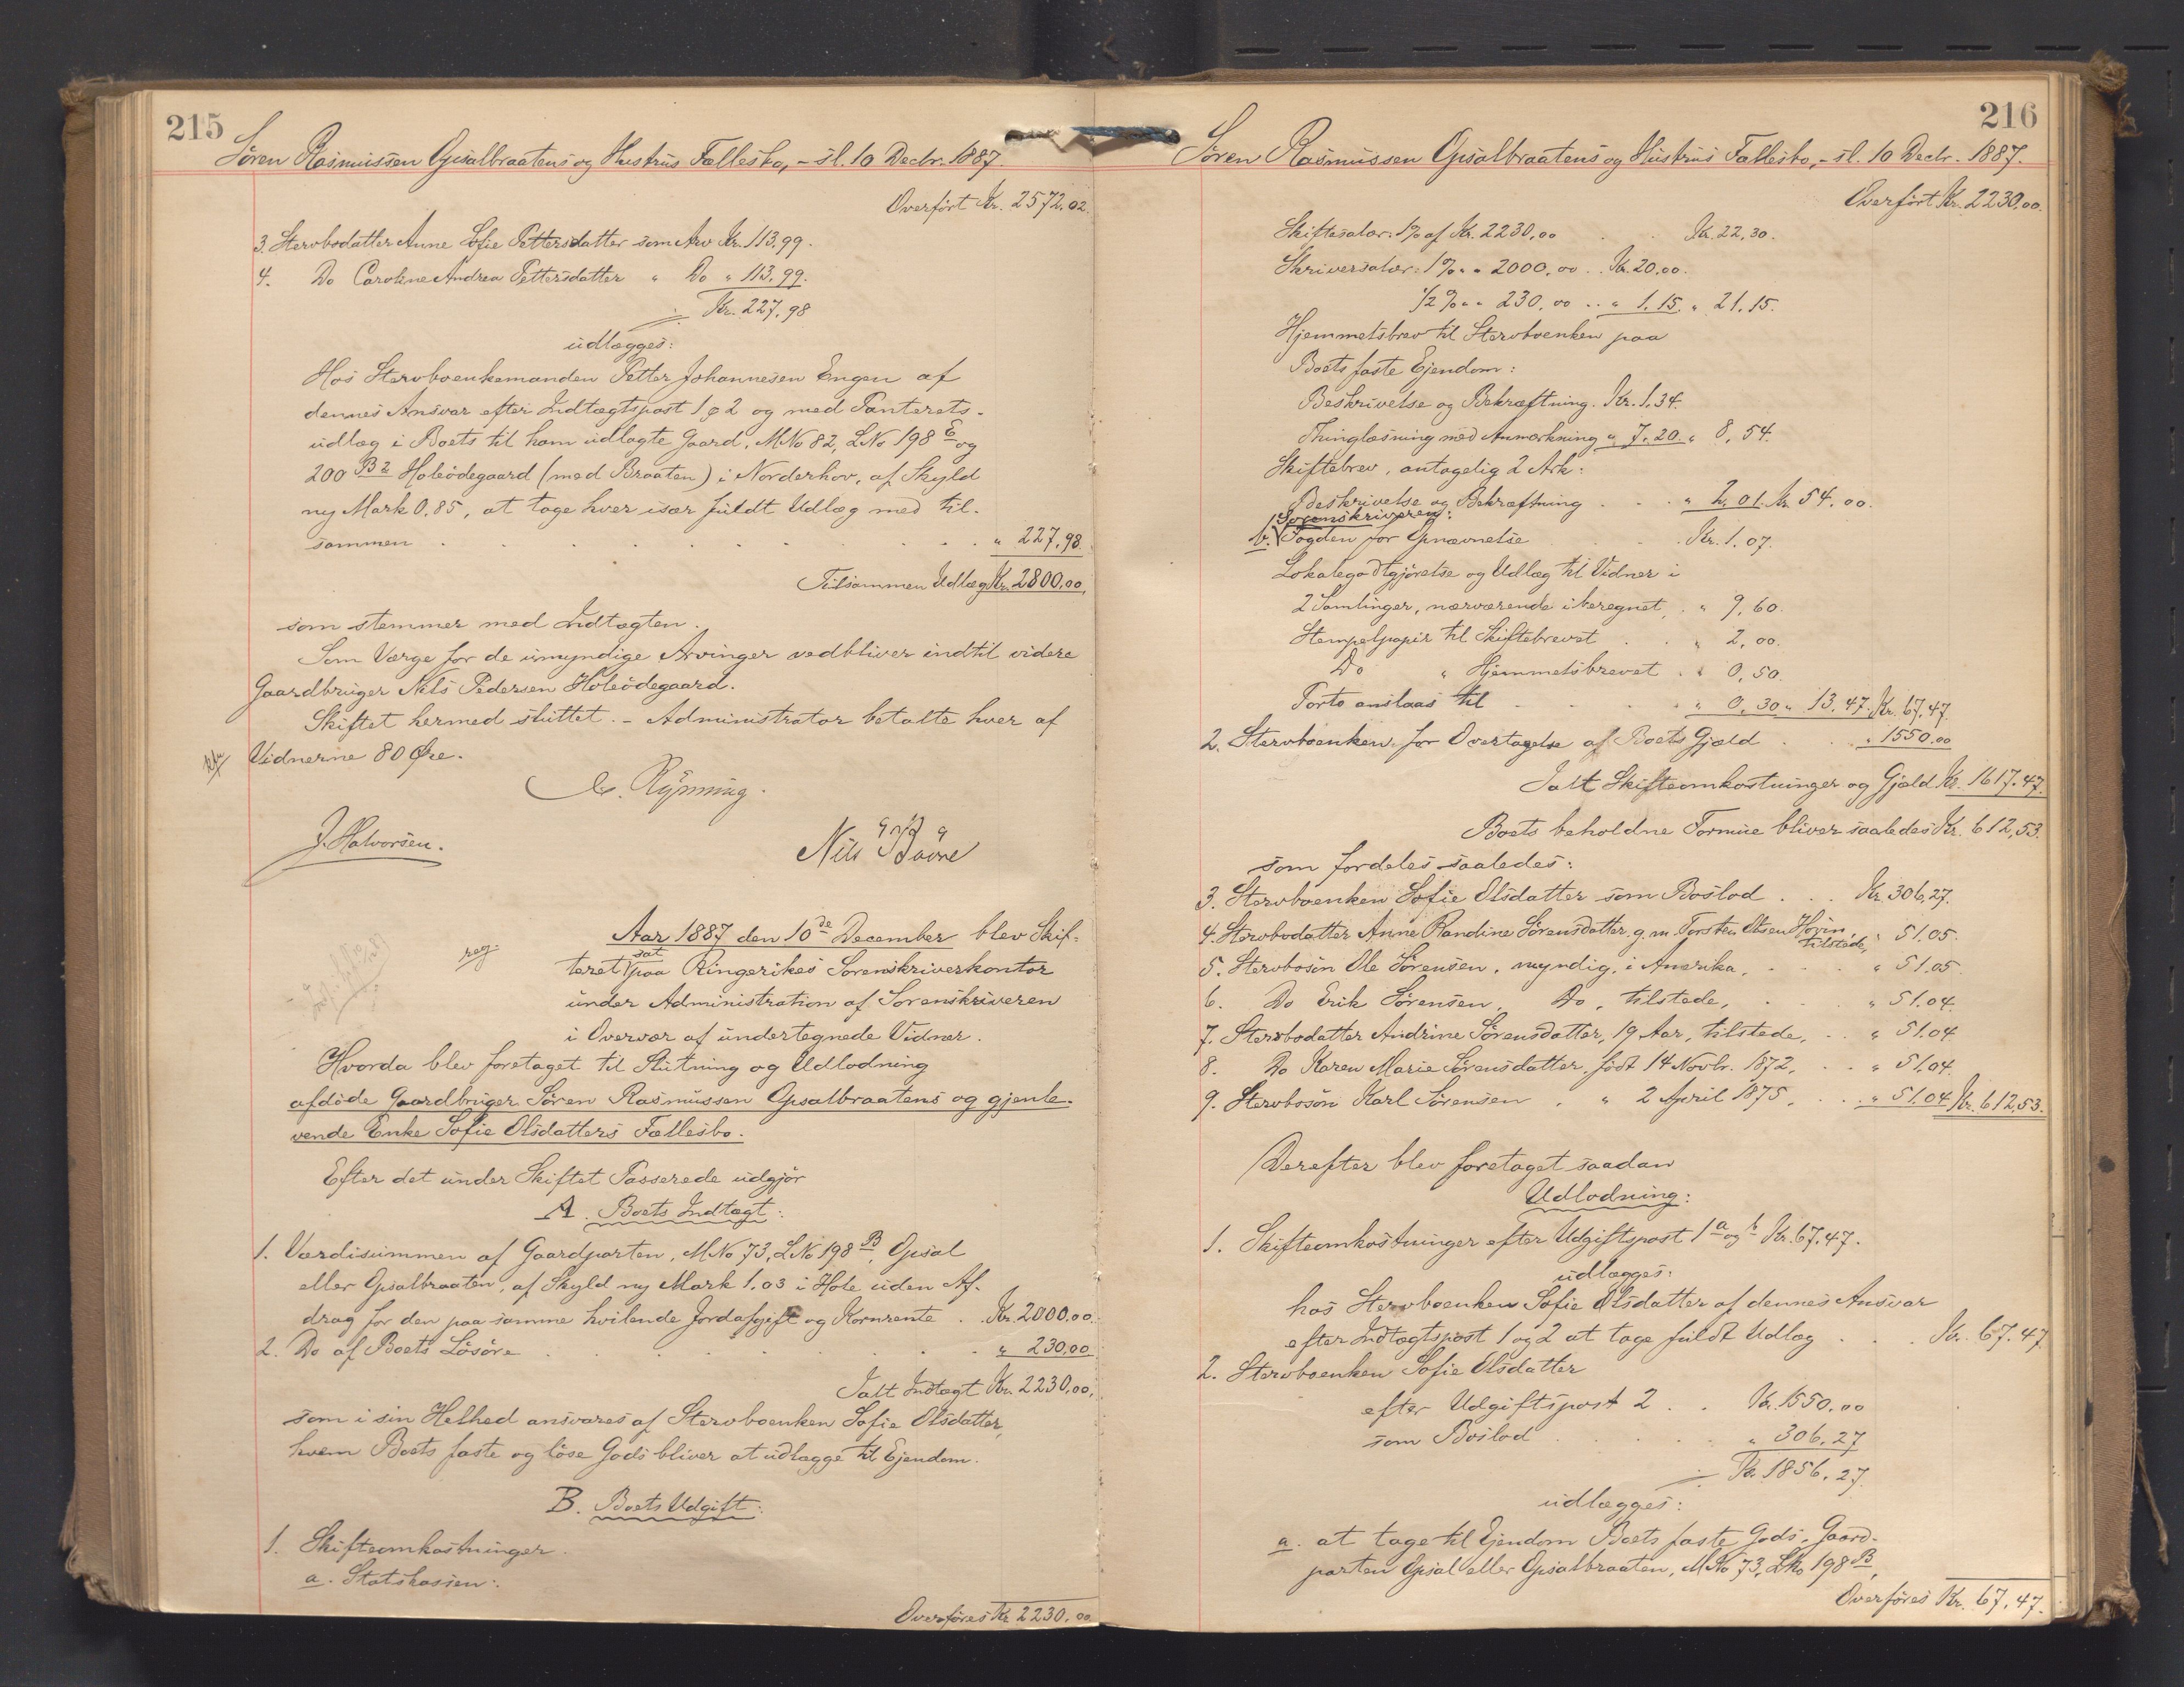 215
Sören Rasmussen Opsalbraatens og Hustrus Fællesbo, - sl. 10 Decbr. 1887.
Overfört Kr. 2572.02.
3. Stervbodatter Anne Sofie Pettersdatter som Arv Kr. 113.99.
4. Do Caroline Andrea Pettersdatter " Do " 113.99.
÷ Kr. 227.98
udlægges:
Hos Stervboenkemanden Petter Johannesen Engen af
dennes Ansvar efter Indtægtspost 1 & 2 og med Panterets-
udlæg i Boets til ham udlagte Gaard, MNo 82, LNo 198 E og
200 B2 Holeödegaard (med Braaten) i Norderhov, af Skyld
ny Mark 0.85, at tage hver især fuldt Udlæg med til-
sammen . . . . . . " 227.98.
Tilsammen Udlæg Kr. 2800.00,
som stemmer med Indtægten.
Som Værge for de umyndige Arvinger vedbliver indtil videre
Gaardbruger Nils Pedersen Holeödegaard.
Skiftet hermed sluttet. - Administrator betalte hver af
Vidnerne 80 Øre.
Rynning.
J. Halvorsen.
Nils
Aar 1887 den 10de December blev Skif-
reg.
teret sat paa Ringerikes Sorenskriverkontor
under Administration af Sorenskriveren
i Overvær af undertegnede Vidner.
Hvorda blev foretaget til Slutning og Udlodning
afdöde Gaardbruger Sören Rasmussen Opsalbraatens og gjenle-
vende Enke Sofie Olsdatters Fællesbo.
Efter det under Skiftet Passerede udgjör
A. Boets Indtægt:
1. Værdisummen af Gaardparten, MNo 73, LNo 198 B, Opsal
eller Opsalbraaten, af Skyld ny Mark 1.03 i Hole uden Af-
drag for den paa samme hvilende Jordafgift og Kornrente . . Kr. 2000.00.
2. Do af Boets Lösöre . . . . . . " 230.00
Ialt Indtægt Kr. 2230.00,
som i sin Helhed ansvares af Stervboenken Sofie Olsdatter,
hvem Boets faste og löse Gods bliver at udlægge til Ejendom.
B. Boets Udgift:
1. Skifteomkostninger.
a. Statskassen:
Overföres Kr. 2230.00
216
Sören Rasmussen Opsalbraatens og Hustrus Fællesbo, - sl. 10 Decbr. 1887.
Overfört Kr. 2230.00.
Skiftesalær: 1% af Kr. 2230.00 . . Kr. 22.30.
Skriversalær: 1% " " 2000.00 . . Kr. 20.00.
1/2 % " " 230.00 . . " 1.15. " 21.15.
Hjemmelsbrev til Stervboenken paa
Boets faste Ejendom:
Beskrivelse og Bekræftning. Kr. 1.34.
Thinglæsning med Anmærkning " 7.20. " 8.54.
Skiftebrev, antagelig 2 Ark:
Beskrivelse og Bekræftning . . . " 2.01. Kr. 54.00.
Sorenskriveren:
b. Fogden for Opnævnelse . . . Kr. 1.07.
Lokalegodtgjörelse og Udlæg til Vidner i
2 Samlinger, nærværende iberegnet, . " 9.60.
Stempelpapir til Skiftebrevet . . " 2.00.
Do " Hjemmelsbrevet . " 0.50.
Porto anslaas til . . . . " 0.30 " 13.47. Kr. 67.47.
2. Stervboenken, for Overtagelse af Boets Gjæld . . . " 1550.00
Ialt Skifteomkostninger og Gjæld Kr. 1617.47.
Boets beholdne Formue bliver saaledes Kr. 612.53.
som fordeles saaledes:
3. Stervboenken Sofie Olsdatter som Boslod . . . Kr. 306.27.
4. Stervbodatter Anne Randine Sörensdatter g. m. Torsten Olsen Hovin, tilstede, " 51.05.
5. Stervbosön Ole Sörensen, myndig, i Amerika, . . . " 51.05.
6. Do Erik Sörensen, Do, tilstede, . . . " 51.04.
7. Stervbodatter Andrine Sörensdatter, 19 Aar, tilstede, . . " 51.04
8. Do Karen Marie Sörensdatter, födt 14 Novbr. 1872, . . " 51.04.
9. Stervbosön Karl Sörensen, " 2 April 1875, . . . " 51.04 Kr. 612.53.
Derefter blev foretaget saadan
Udlodning:
1. Skifteomkostninger efter Udgiftspost 1 a og b Kr. 67.47.
udlægges:
hos Stervboenken Sofie Olsdatter af dennes Ansvar
efter Indtægtspost 1 og 2 at tage fuldt Udlæg . . . Kr. 67.47
2. Stervboenken Sofie Olsdatter
efter Udgiftspost 2 . . Kr. 1550.00
som Boslod . . . . " 306.27
÷ Kr. 1856.27
udlægges:
a. at tage til Ejendom Boets faste Gods, Gaard-
parten Opsal eller Opsalbraaten, MNo 73, LNo 198 B,
Overföres Kr. 67.47.